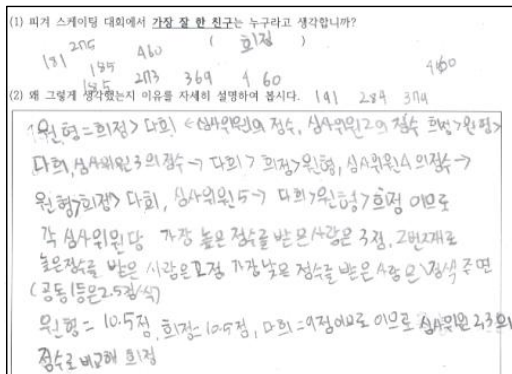 (1) 피겨 스케이팅 대회에서 가장 잘 한 친구는 누구라고 생각합니까?
( 희정 )
181 275 460
185
185 273 369 460
460
(2) 왜 그렇게 생각했는지 이유를 자세히 설명하여 봅시다. 191 284 374
원형=희정>다희 ←심사위원1의 점수, 심사위원2의 점수 희정>원형>
다희, 심사위원3의점수→ 다희>희정>원형, 심사위원4의점수→
원형>희정>다희, 심사위원5→ 다희>원형>희정 이므로
각 심사위원당 가장 높은 점수를 받은사람은 3점, 2번째로
높은점수를 받은 사람은 2점 가장낮은 점수를 받은사람은 1점씩 주면
(공동1등은 2.5점씩)
원형= 10.5점, 희정=10.5점, 다희=9점이므로 이므로 심사위원2,3의
점수로 비교해 희정